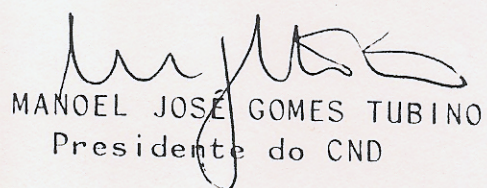 MANOEL JOSÉ GOMES TUBINO
Presidente do CND